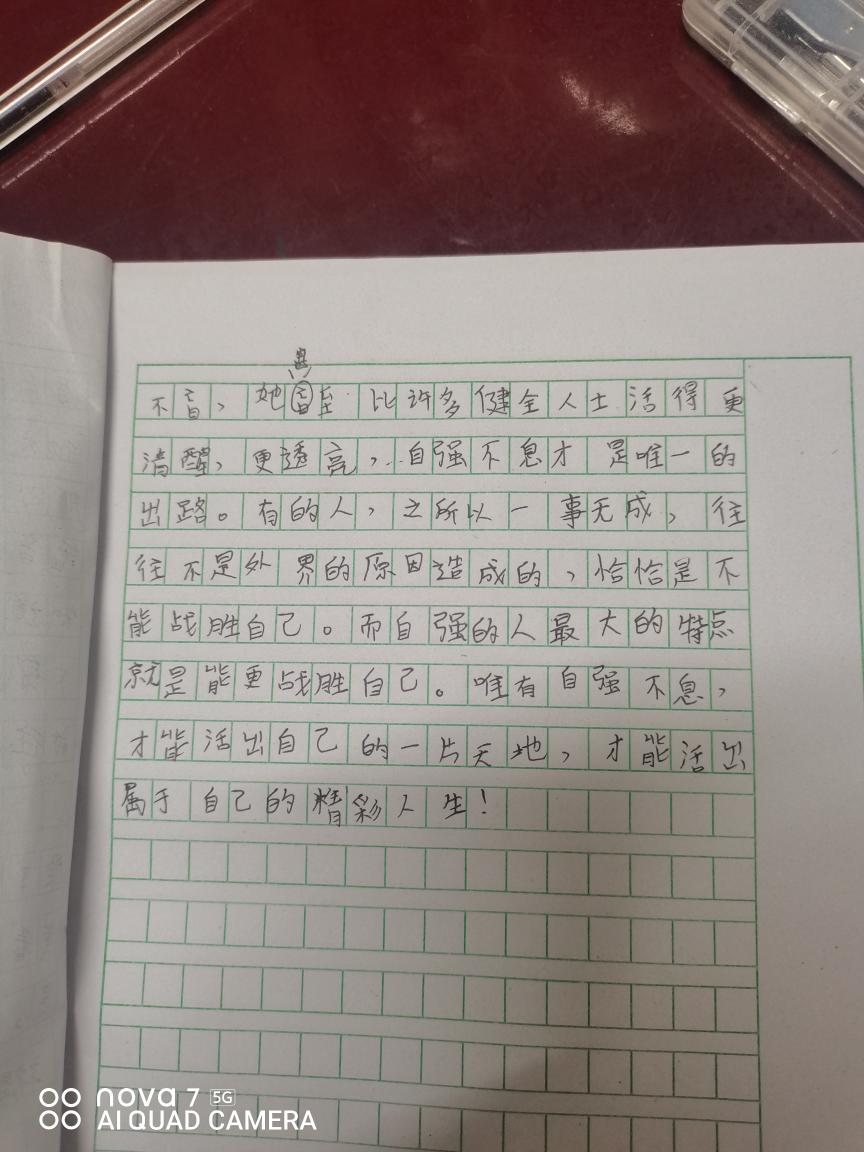 甚
不盲，她置至比许多健全人士活得更
清醒，更透亮，自强不息才是唯一的
出路。有的人，之所以一事无成，往
往不是外界的原因造成的，恰恰是不
能战胜自己。而自强的人最大的特点
就是能更战胜自己。唯有自强不息，
才能活出自己的一片天地，才能活出
属于自己的精彩人生！
nova 7 5G
AI QUAD CAMERA